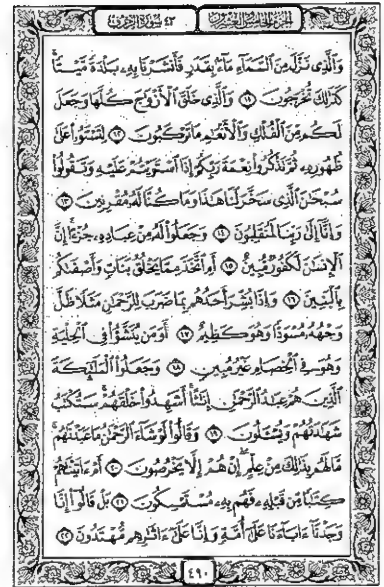 الجزء الخامس والعشرون
٤٣ سورة الزخرف
وَالَّذِي نَزَّلَ مِنَ السَّمَاءِ مَاءً بِقَدَرٍ فَأَنشَرْنَا بِهِ بَلْدَةً مَّيْتًا
كَذَٰلِكَ تُخْرَجُونَ ١١ وَالَّذِي خَلَقَ الْأَزْوَاجَ كُلَّهَا وَجَعَلَ
لَكُم مِّنَ الْفُلْكِ وَالْأَنْعَامِ مَا تَرْكَبُونَ ١٢ لِتَسْتَوُوا عَلَىٰ
ظُهُورِهِ ثُمَّ تَذْكُرُوا نِعْمَةَ رَبِّكُمْ إِذَا اسْتَوَيْتُمْ عَلَيْهِ وَتَقُولُوا
سُبْحَٰنَ الَّذِي سَخَّرَ لَنَا هَٰذَا وَمَا كُنَّا لَهُ مُقْرِنِينَ ١٣
وَإِنَّا إِلَىٰ رَبِّنَا لَمُنقَلِبُونَ ١٤ وَجَعَلُوا لَهُ مِنْ عِبَادِهِ جُزْءًا إِنَّ
الْإِنسَٰنَ لَكَفُورٌ مُّبِينٌ ١٥ أَمِ اتَّخَذَ مِمَّا يَخْلُقُ بَنَاتٍ وَأَصْفَىٰكُم
بِالْبَنِينَ ١٦ وَإِذَا بُشِّرَ أَحَدُهُم بِمَا ضَرَبَ لِلرَّحْمَٰنِ مَثَلًا ظَلَّ
وَجْهُهُ مُسْوَدًّا وَهُوَ كَظِيمٌ ١٧ أَوَمَن يُنَشَّؤُا فِي الْحِلْيَةِ
وَهُوَ فِي الْخِصَامِ غَيْرُ مُبِينٍ ١٨ وَجَعَلُوا الْمَلَٰئِكَةَ
الَّذِينَ هُمْ عِبَٰدُ الرَّحْمَٰنِ إِنَٰثًا أَشَهِدُوا خَلْقَهُمْ سَتُكْتَبُ
شَهَٰدَتُهُمْ وَيُسْـَٔلُونَ ١٩ وَقَالُوا لَوْ شَاءَ الرَّحْمَٰنُ مَا عَبَدْنَٰهُم
مَّا لَهُم بِذَٰلِكَ مِنْ عِلْمٍ إِنْ هُمْ إِلَّا يَخْرُصُونَ ٢٠ أَمْ ءَاتَيْنَٰهُمْ
كِتَٰبًا مِّن قَبْلِهِ فَهُم بِهِ مُسْتَمْسِكُونَ ٢١ بَلْ قَالُوا إِنَّا
وَجَدْنَا ءَابَاءَنَا عَلَىٰ أُمَّةٍ وَإِنَّا عَلَىٰ ءَاثَٰرِهِم مُّهْتَدُونَ ٢٢
٤٩٠